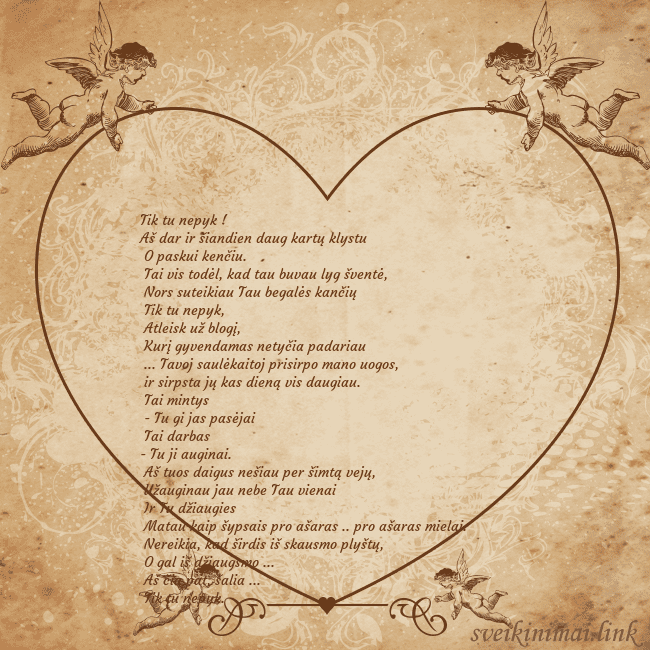 Tik tu nepyk !
Aš dar ir šiandien daug kartų klystu
O paskui kenčiu.
Tai vis todėl, kad tau buvau lyg šventė,
Nors suteikiau Tau begalės kančių
Tik tu nepyk,
Atleisk už blogį,
Kurį gyvendamas netyčia padariau
... Tavoj saulėkaitoj prisirpo mano uogos,
ir sirpsta jų kas dieną vis daugiau.
Tai mintys
- Tu gi jas pasėjai
Tai darbas
- Tu ji auginai.
Aš tuos daigus nešiau per šimtą vejų,
Užauginau jau nebe Tau vienai
Ir Tu džiaugies
Matau kaip šypsais pro ašaras .. pro ašaras mielai.
Nereikia, kad širdis iš skausmo plyštų,
O gal iš džiaugsmo ...
Aš čia pat, šalia ...
Tik tu nepyk.
sveikinimai.link